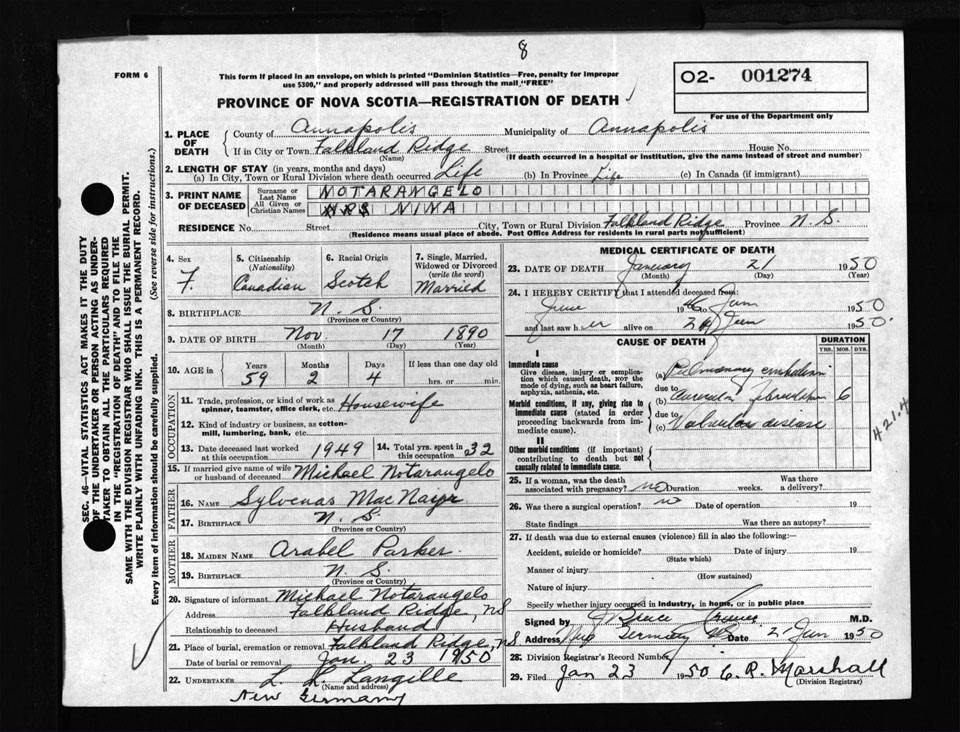 8
FORM 6
This form if placed in an envelope, on which is printed "Dominion Statistics—Free, penalty for improper
use $300," and properly addressed will pass through the mail "FREE"
O2- 001274
PROVINCE OF NOVA SCOTIA—REGISTRATION OF DEATH
For use of the Department only
1. PLACE OF DEATH { County of Annapolis Municipality of Annapolis
If in City or Town Falkland Ridge Street House No.
(Name) (If death occurred in a hospital or institution, give the name instead of street and number)
2. LENGTH OF STAY (in years, months and days)
(a) In City, Town or Rural Division where death occurred Life (b) In Province Life (c) In Canada (if immigrant)
3. PRINT NAME OF DECEASED { Surname or Last Name NOTARANGELO
All Given or Christian Names MRS NINA
RESIDENCE No. Street City, Town or Rural Division Falkland Ridge Province N. S.
(Residence means usual place of abode. Post Office Address for residents in rural parts not sufficient)
4. Sex 5. Citizenship (Nationality) 6. Racial Origin 7. Single, Married, Widowed or Divorced (write the word)
F. Canadian Scotch Married
8. BIRTHPLACE N. S.
(Province or Country)
9. DATE OF BIRTH Nov. 17 1890
(Month) (Day) (Year)
10. AGE in { Years Months Days If less than one day old
59 2 4 hrs. or min.
OCCUPATION
11. Trade, profession, or kind of work as spinner, teamster, office clerk, etc. Housewife
12. Kind of industry or business, as cotton-mill, lumbering, bank, etc.
13. Date deceased last worked at this occupation 1949 14. Total yrs. spent in this occupation 32
15. If married give name of wife or husband of deceased Michael Notarangelo
FATHER
16. NAME Sylvenas Mac Nayr
17. BIRTHPLACE N. S.
(Province or Country)
MOTHER
18. MAIDEN NAME Arabel Parker
19. BIRTHPLACE N. S.
(Province or Country)
20. Signature of informant Michael Notarangelo
Address Falkland Ridge, NS
Relationship to deceased Husband
21. Place of burial, cremation or removal Falkland Ridge, NS
Date of burial or removal Jan. 23 1950
22. UNDERTAKER L. L. Langille
(Name and address)
New Germany
MEDICAL CERTIFICATE OF DEATH
23. DATE OF DEATH January 21 1950
(Month) (Day) (Year)
24. I HEREBY CERTIFY that I attended deceased from:
June 1946 to Jan 1950
and last saw her alive on 21 Jan 1950.
CAUSE OF DEATH
DURATION
YRS. MOS. DYS.
I
Immediate cause
Give disease, injury or complication which caused death, NOT the mode of dying, such as heart failure, asphyxia, asthenia, etc.
(a) Pulmonary embolism
due to
Morbid conditions, if any, giving rise to immediate cause (stated in order proceeding backwards from immediate cause).
(b) Auricular fibrillation 6
due to
(c) Valvular disease
421.4
II
Other morbid conditions (if important) contributing to death but not causally related to immediate cause.
25. If a woman, was the death associated with pregnancy? no Duration weeks. Was there a delivery?
26. Was there a surgical operation? no Date of operation 19
State findings Was there an autopsy?
27. If death was due to external causes (violence) fill in also the following:—
Accident, suicide or homicide? Date of injury 19
(State which)
Manner of injury
(How sustained)
Nature of injury
Specify whether injury occurred in Industry, in home, or in public place
Signed by J Bruce M.D.
Address New Germany NS Date 21 Jan 1950
28. Division Registrar's Record Number
29. Filed Jan 23 1950 C. R. Marshall
(Division Registrar)
SEC. 46—VITAL STATISTICS ACT MAKES IT THE DUTY
OF THE UNDERTAKER OR PERSON ACTING AS UNDER-
TAKER TO OBTAIN ALL THE PARTICULARS REQUIRED
IN THE "REGISTRATION OF DEATH" AND TO FILE THE
SAME WITH THE DIVISION REGISTRAR WHO SHALL ISSUE THE BURIAL PERMIT.
WRITE PLAINLY WITH UNFADING INK. THIS IS A PERMANENT RECORD.
Every item of information should be carefully supplied. (See reverse side for instructions.)